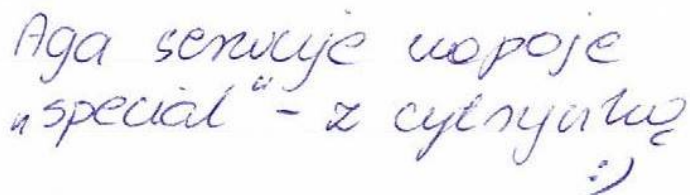 Aga serwuje napoje
„special" - z cytrynką
:)